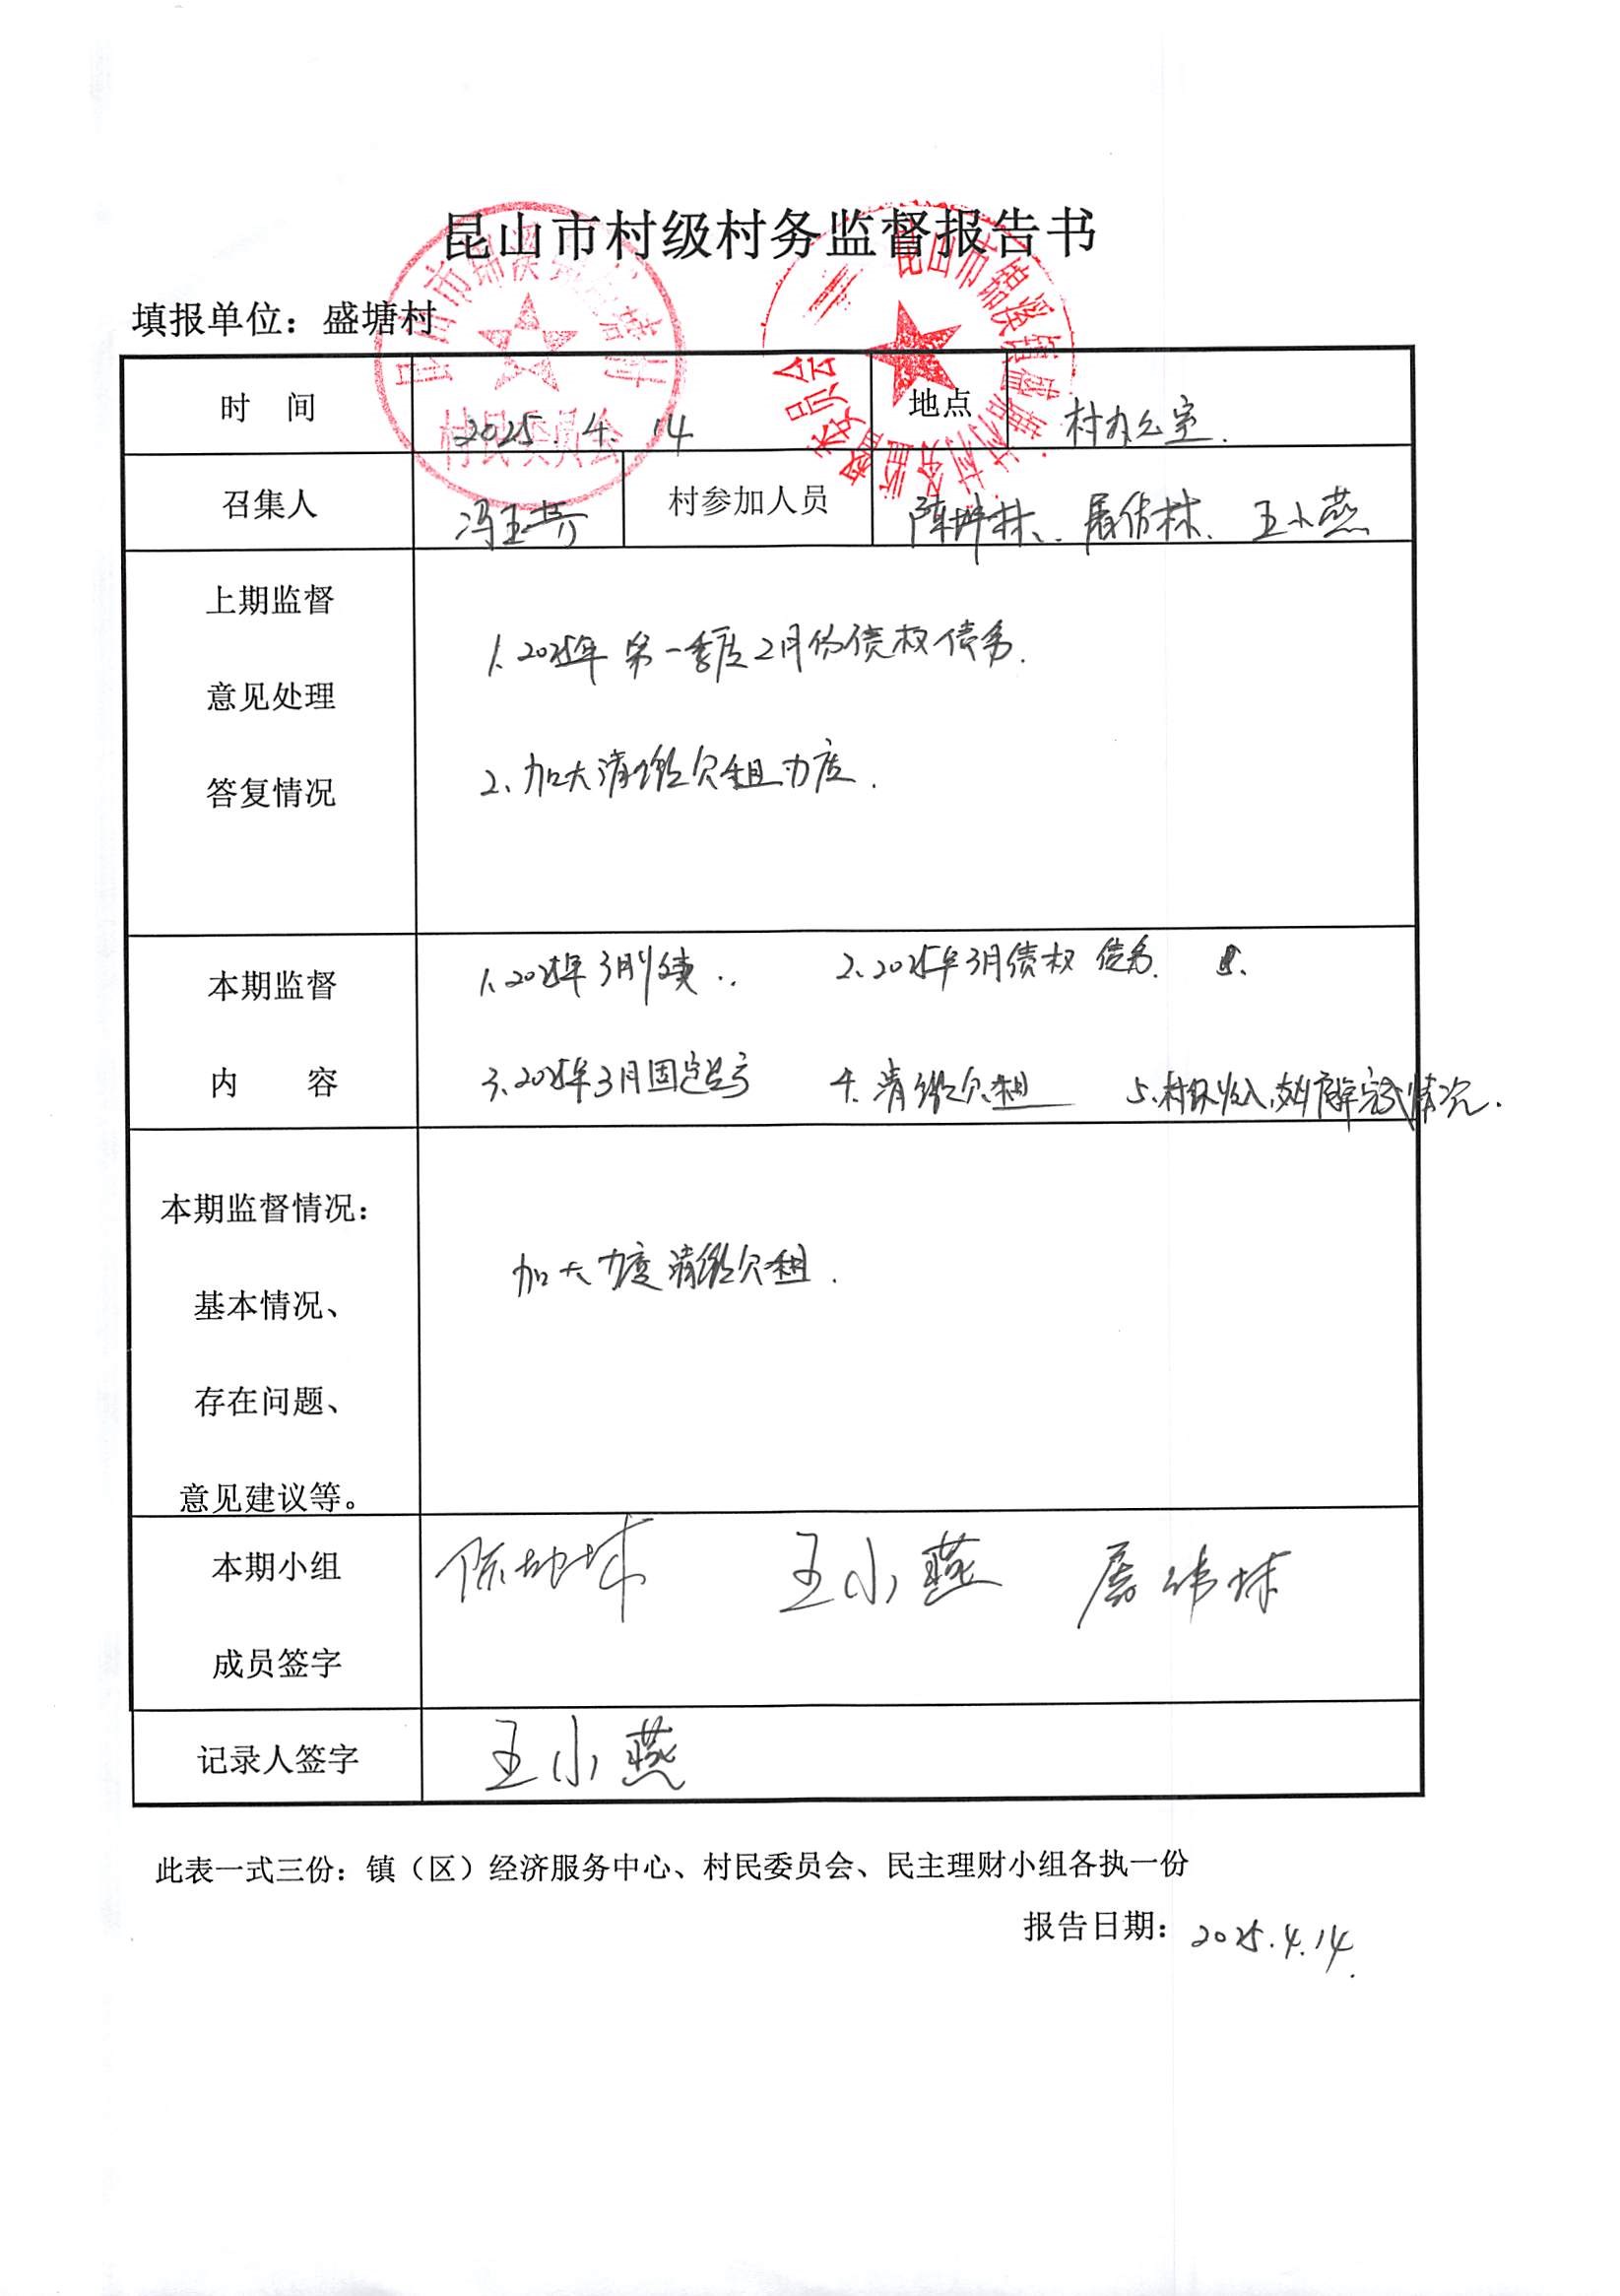 昆山市村级村务监督报告书
填报单位：盛塘村
时 间 2025.4.14 地点 村办公室.
召集人 冯玉芳 村参加人员 陈坤林、屠伟林、王小燕
上期监督
意见处理
答复情况
1、2025年第一季度2月份债权债务.
2、加大清缴欠租力度.
本期监督
内 容
1、2025年3月 2、2025年3月债权债务.
3、2025年3月固定 4、清缴欠租 5、村级收入、支出 完成情况.
本期监督情况：
基本情况、
存在问题、
意见建议等。
加大力度清缴欠租.
本期小组
成员签字
陈坤林 王小燕 屠伟林
记录人签字 王小燕
此表一式三份：镇（区）经济服务中心、村民委员会、民主理财小组各执一份
报告日期：2025.4.14.
昆山市锦溪镇盛塘村
村民委员会
昆山市锦溪镇盛塘村村务监督委员会